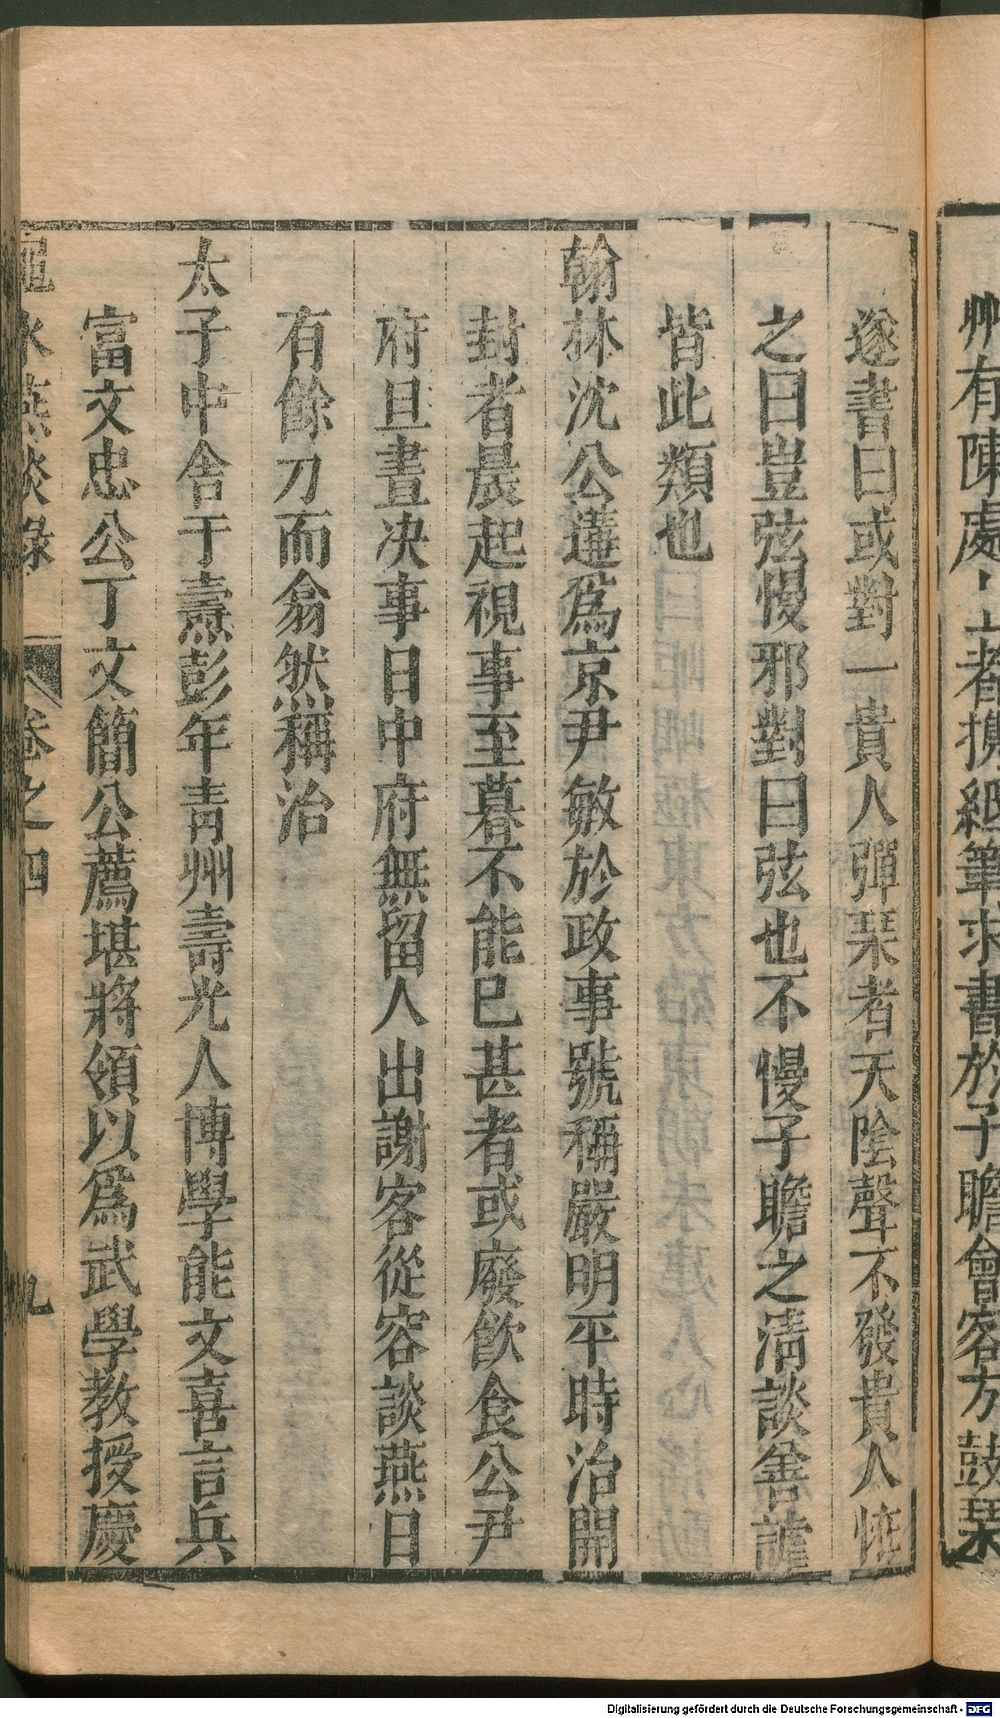 州有陳處士者攜紙筆求書於子瞻會客方鼓琴
遂書曰或對一貴人彈琴者天陰聲不發貴人怪
之曰豈弦慢邪對曰弦也不慢子瞻之清談善謔
皆此類也
翰林沈公遘爲京尹敏於政事號稱嚴明平時治開
封者晨起視事至暮不能已甚者或廢飲食公尹
府旦晝决事日中府無留人出謝客從容談燕日
有餘刀而翕然稱治
太子中舍于燾彭年青州壽光人博學能文喜言兵
富文忠公丁文簡公薦堪將領以爲武學教授慶
澠水燕談錄 卷之四 九
Digitalisierung gefördert durch die Deutsche Forschungsgemeinschaft - DFG